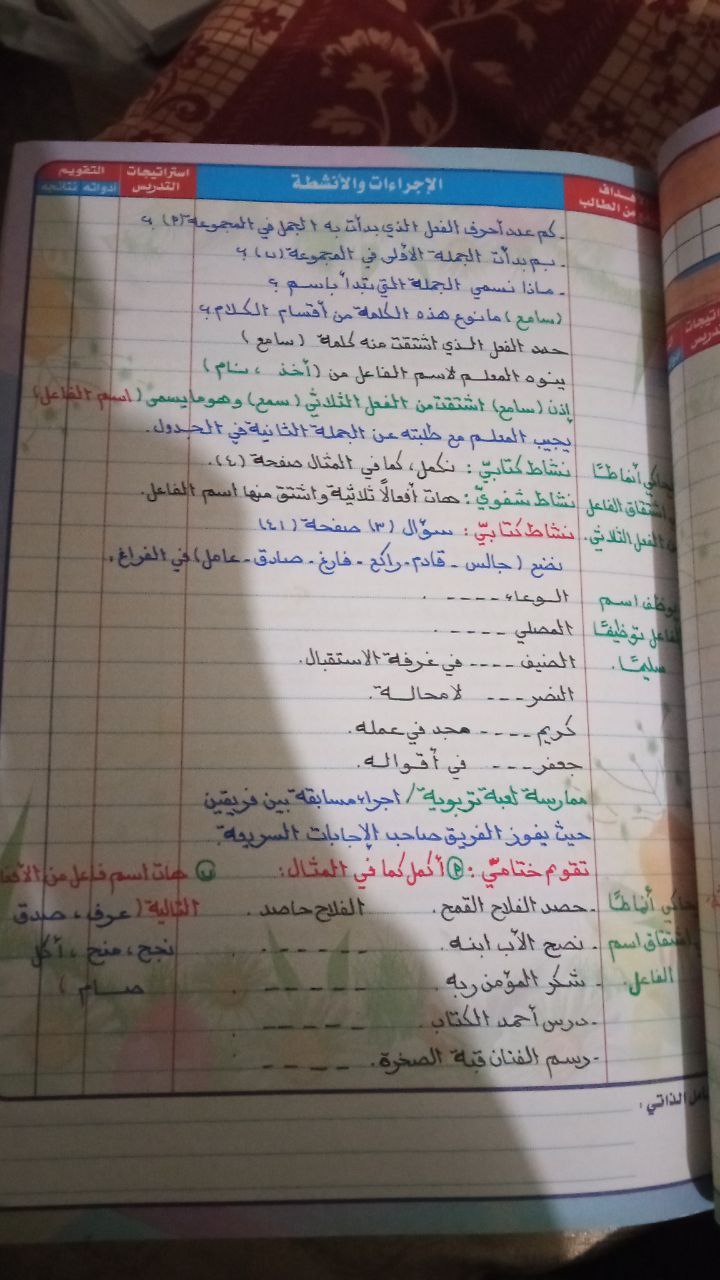 هداف
من الطالب
الإجراءات والأنشطة
استراتيجات
التدريس
التقويم
أدواته نتائجه
- كم عدد أحرف الفعل الذي بدأت به الجمل في المجموعة (٢)؟
- بم بدأت الجملة الأولى في المجموعة (ب)؟
- ماذا نسمي الجملة التي تبدأ باسم؟
(سامع) ما نوع هذه الكلمة من أقسام الكلام؟
حدد الفعل الذي اشتقت منه كلمة (سامع)
ينوه المعلم لاسم الفاعل من (أخذ، نام)
إذن (سامع) اشتقت من الفعل الثلاثي (سمع) وهو ما يسمى (اسم الفاعل)
يجيب المعلم مع طلبته عن الجملة الثانية في الجدول.
يحاكي أنماطًا نشاط كتابيّ: نكمل، كما في المثال صفحة (٤).
اشتقاق الفاعل نشاط شفويّ: هات أفعالًا ثلاثية واشتق منها اسم الفاعل.
الفعل الثلاثي. نشاط كتابيّ: سؤال (٣) صفحة (٤١)
نضع (جالس - قادم - راكع - فارغ - صادق - عامل) في الفراغ.
يوظف اسم الوعاء ---- .
الفاعل توظيفًا المصلي ---- .
سليمًا. الضيف ---- في غرفة الاستقبال.
النصر --- لا محالة.
كريم ---- مجد في عمله.
جعفر --- في أقواله.
ممارسة لعبة تربوية / اجراء مسابقة بين فريقين
حيث يفوز الفريق صاحب الإجابات السريعة.
تقوم ختاميّ: (٢) أكمل كما في المثال: (ب) هات اسم فاعل من
يحاكي أنماطًا - حصد الفلاح القمح. الفلاح حاصد. التالية (عرف، صدق
اشتقاق اسم - نصح الأب ابنه. ------ . نجح، منح، أكل
الفاعل. - شكر المؤمن ربه. ------ . صام)
- درس أحمد الكتاب. ----- .
- رسم الفنان قبة الصخرة. ---- .
الذاتي: